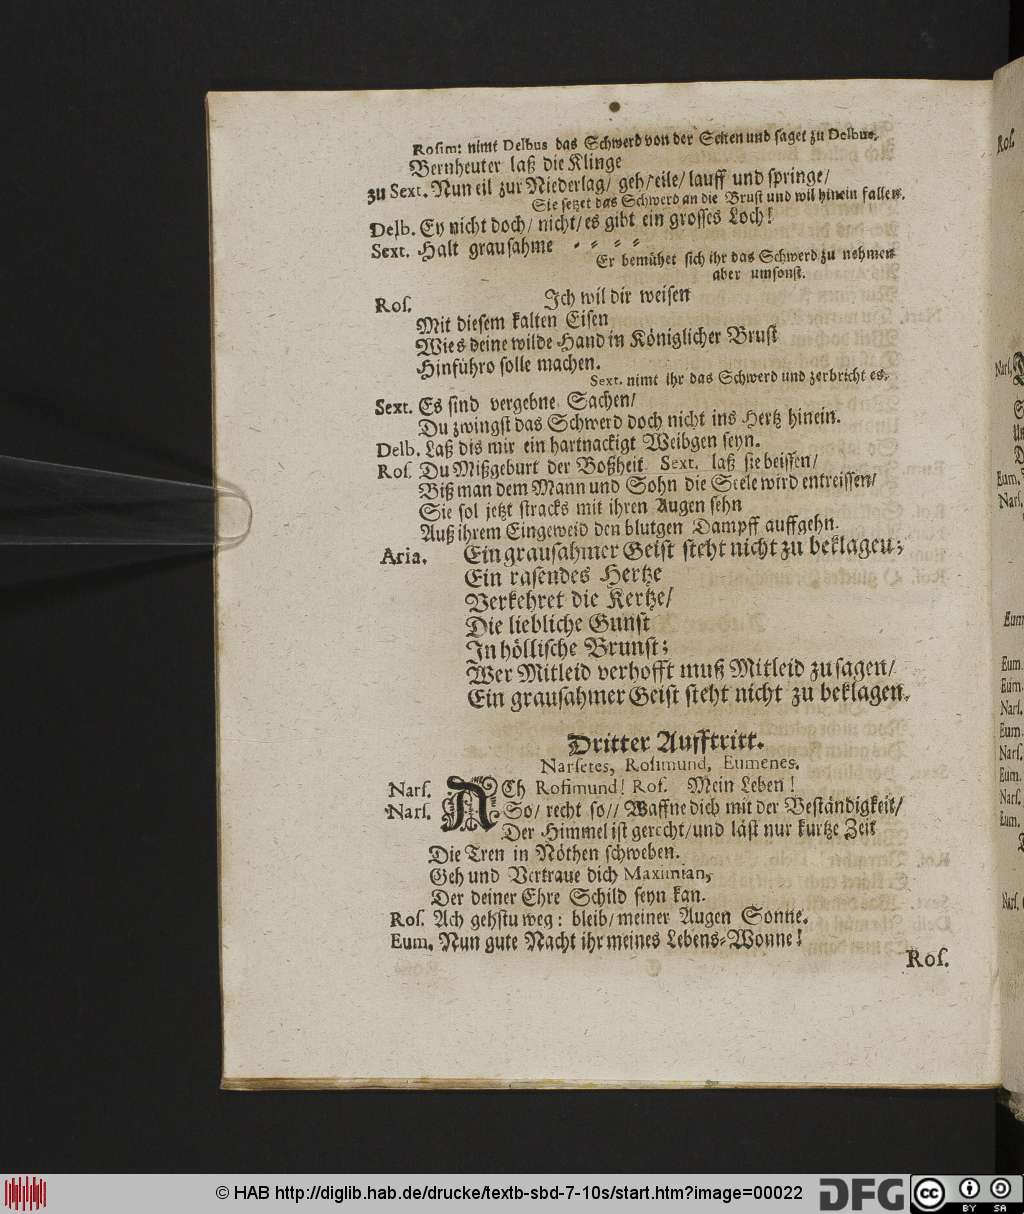 Rosim: nimt Delbus das Schwerd von der Seiten und saget zu Delbus.
Bernheuter laß die Klinge
zu Sext. Nun eil zur Niederlag/ geh/ eile/ lauff und springe/
Sie setzet das Schwerd an die Brust und wil hinein fallen.
Delb. Ey nicht doch/ nicht/ es gibt ein grosses Loch!
Sext. Halt grausahme - - - -
Er bemühet sich ihr das Schwerd zu nehmen
aber umsonst.
Ros. Ich wil dir weisen
Mit diesem kalten Eisen
Wies deine wilde Hand in Königlicher Brust
Hinführo solle machen.
Sext. nimt ihr das Schwerd und zerbricht es.
Sext. Es sind vergebne Sachen/
Du zwingst das Schwerd doch nicht ins Hertz hinein.
Delb. Laß dis mir ein hartnackigt Weibgen seyn.
Ros. Du Mißgeburt der Boßheit Sext. laß sie beissen/
Biß man dem Mann und Sohn die Seele wird entreissen/
Sie sol jetzt stracks mit ihren Augen sehn
Auß ihrem Eingeweid den blutgen Dampff auffgehn.
Aria. Ein grausahmer Geist steht nicht zu beklagen;
Ein rasendes Hertze
Verkehret die Kertze/
Die liebliche Gunst
In höllische Brunst;
Wer Mitleid verhofft muß Mitleid zusagen/
Ein grausahmer Geist steht nicht zu beklagen.
Dritter Aufftritt.
Narsetes, Rosimund, Eumenes.
Nars. ACh Rosimund! Ros. Mein Leben!
Nars. So/ recht so// Waffne dich mit der Beständigkeit/
Der Himmel ist gerecht/ und läst nur kurtze Zeit
Die Treu in Nöthen schweben.
Geh und Vertraue dich Maximian,
Der deiner Ehre Schild seyn kan.
Ros. Ach gehstu weg: bleib/ meiner Augen Sonne.
Eum. Nun gute Nacht ihr meines Lebens-Wonne!
Ros.
© HAB http://diglib.hab.de/drucke/textb-sbd-7-10s/start.htm?image=00022
DFG
cc BY SA